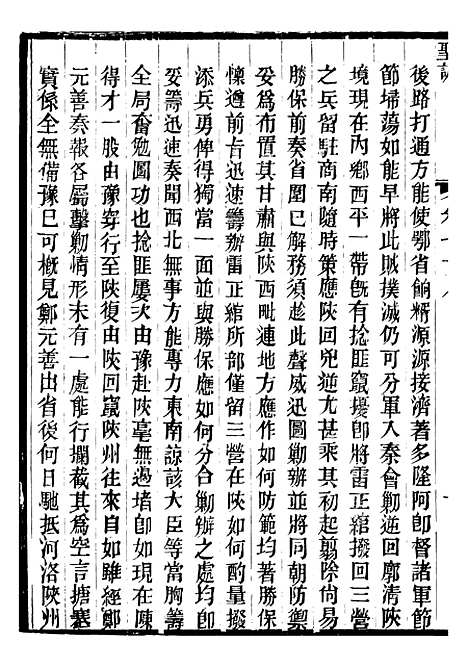 聖訓
後路打通方能使鄂省餉糈源源接濟著多隆阿卽督諸軍節
節埽蕩如能早將此賊撲滅仍可分軍入秦會勦逆回廓清陝
境現在內鄉西平一帶旣有捻匪竄擾卽將雷正綰撥回三營
之兵留駐商南隨時策應陝回兇逆尤甚乘其初起翦除尙易
勝保前奏省圍已解務須趁此聲威迅圖勦辦並將同朝防禦
妥爲布置其甘肅與陝西毗連地方應作如何防範均著熙麟
懍遵前旨迅速籌辦雷正綰所部僅留三營在陝如何酌量撥
添兵勇俾得獨當一面並與勝保應如何分合勦辦之處均卽
妥籌迅速奏聞西北無事方能專力東南諒該大臣等當胸籌
全局奮勉圖功也捻匪屢次由豫赴陝毫無過堵卽如現在陳
得才一股由豫穿行至陝復由陝回竄陝州往來自如雖經鄭
元善奏報各屬擊勦情形未有一處能行攔截其爲空言搪塞
實係全無備豫已可槪見鄭元善由省後何日馳抵河洛陝州